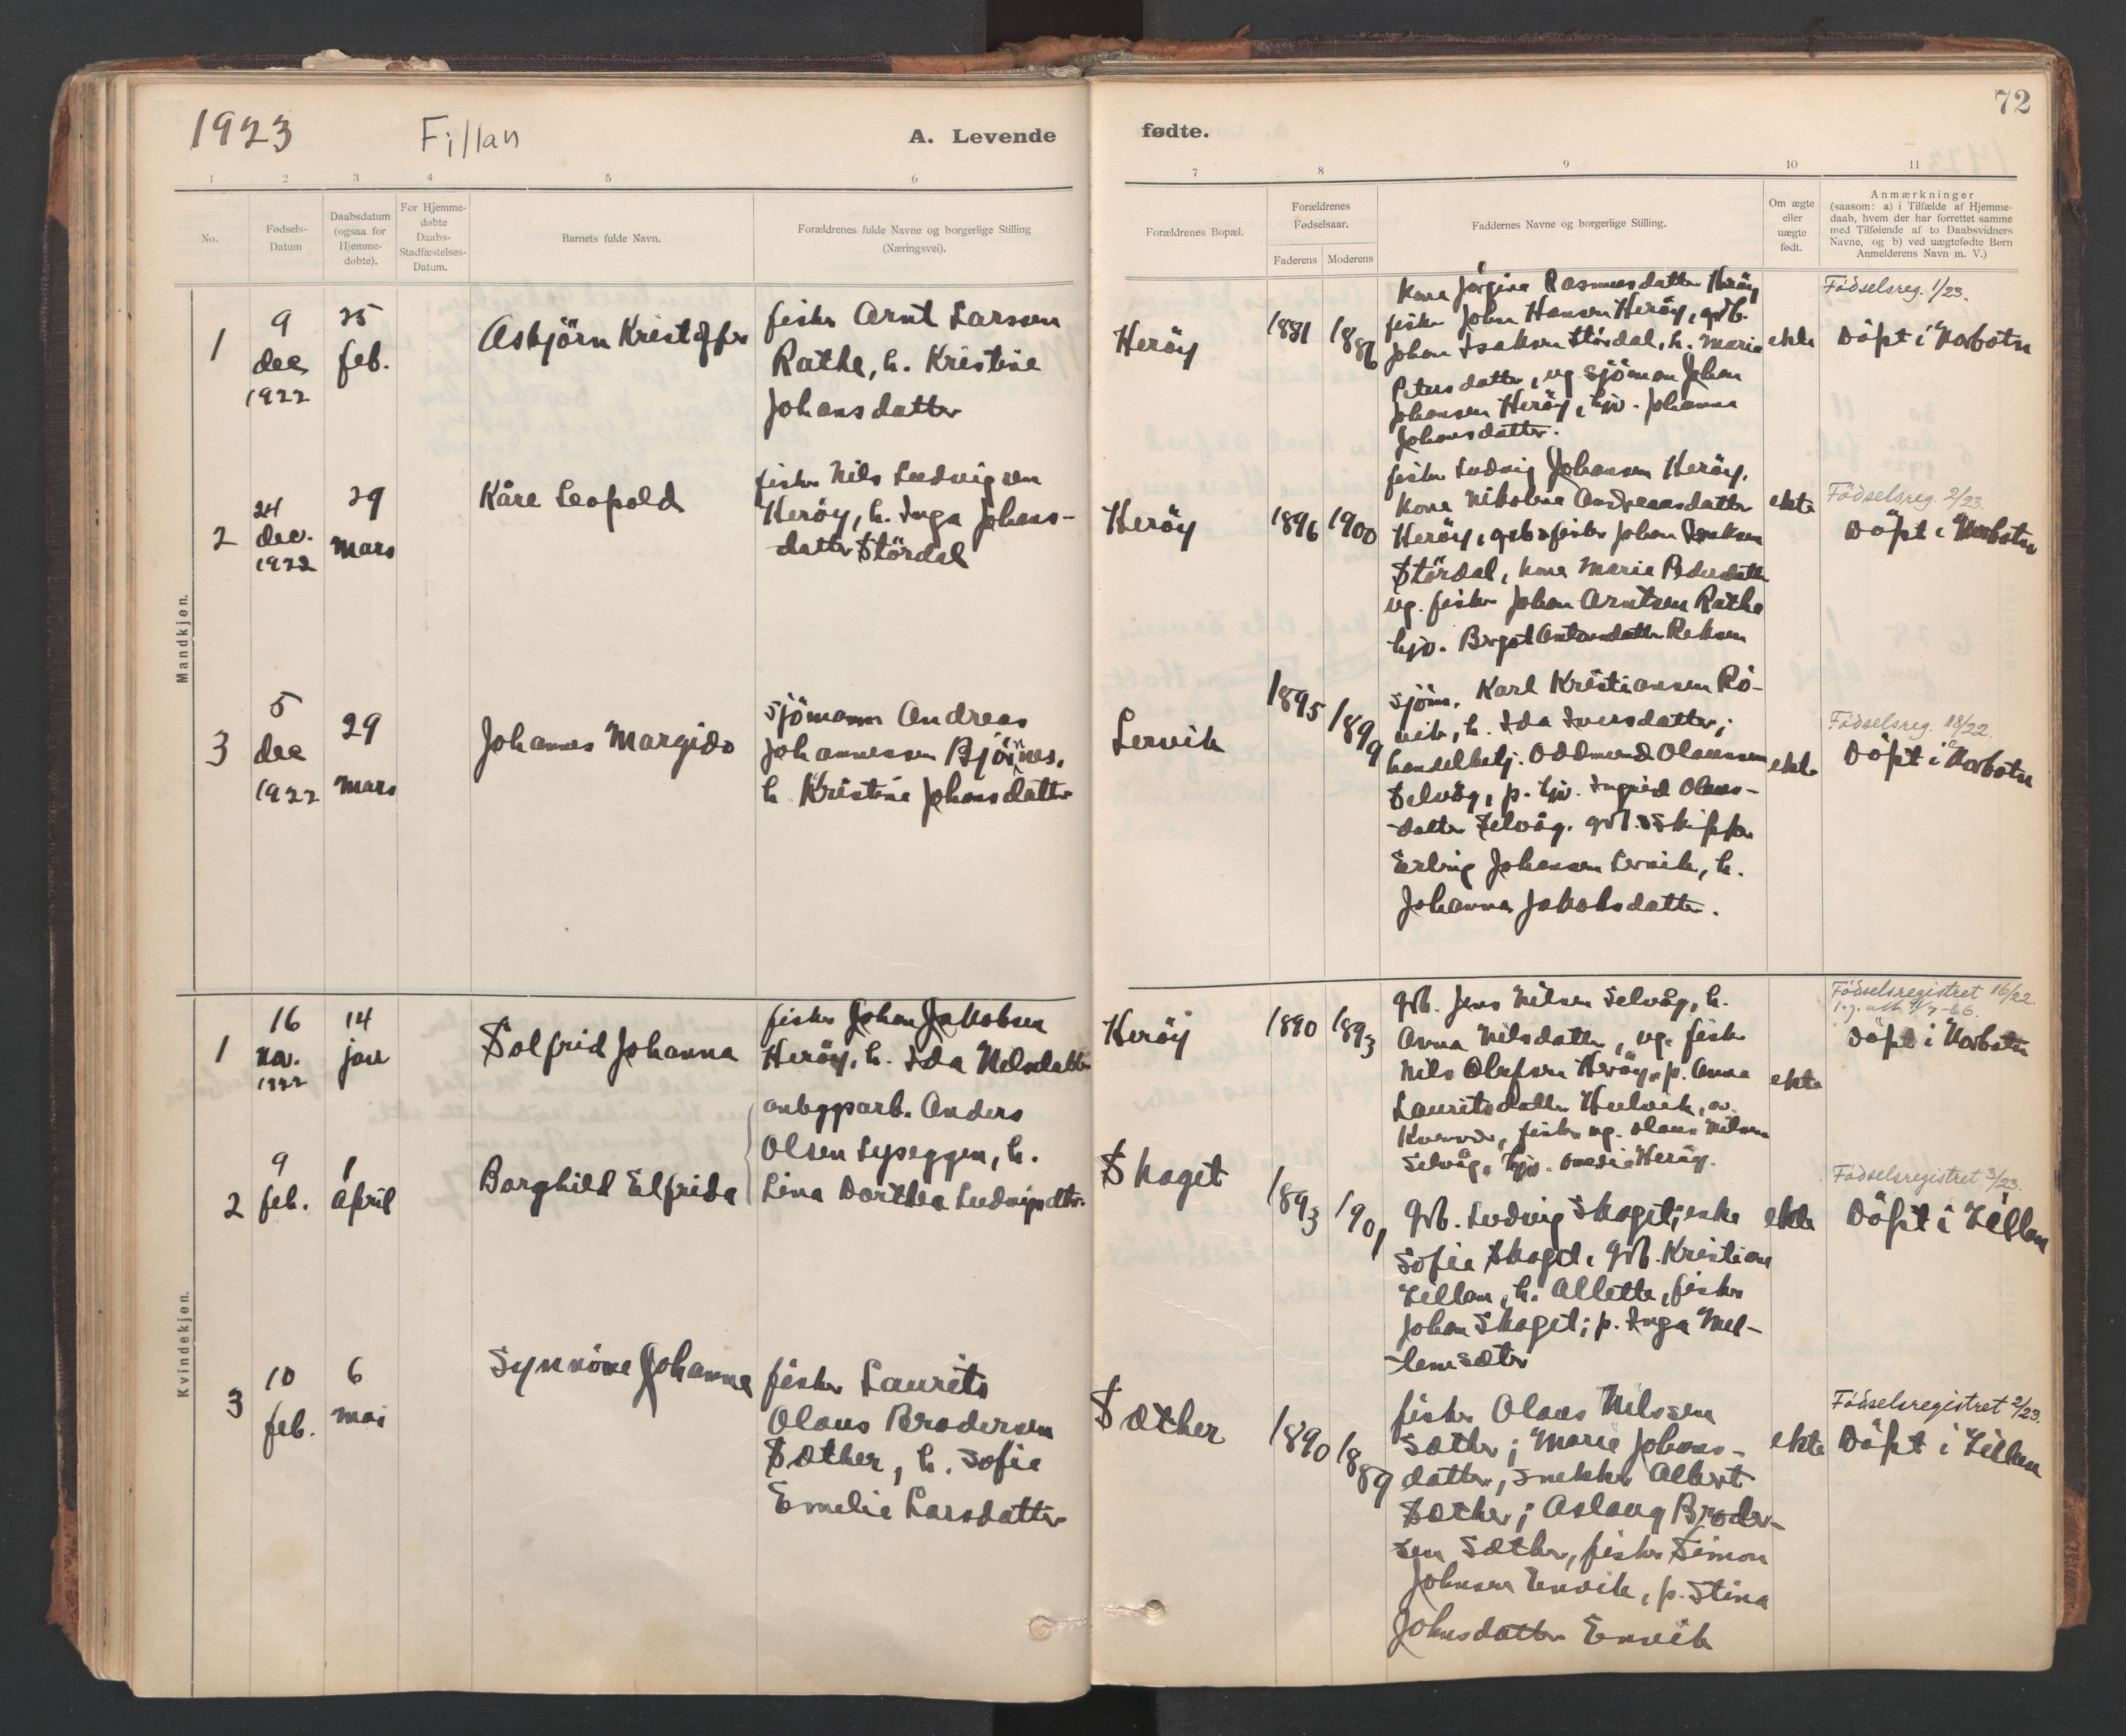 1923
Fillan
A. Levende
fødte.
72
1 2 3 4 5 6
7 8 9 10 11
No.
Fødsels-
Datum
Daabsdatum
(ogsaa for
Hjemme-
døbte).
For Hjemme-
døbte
Daabs-
Stadfæstelses-
Datum.
Barnets fulde Navn.
Forældrenes fulde Navne og borgerlige Stilling
(Næringsvei).
Forældrenes Bopæl.
Forældrenes
Fødselsaar.
Faderens
Moderens
Faddernes Navne og borgerlige Stilling.
Om ægte
eller
uægte
født.
Anmærkninger
(saasom: a) i Tilfælde af Hjemme-
daab, hvem der har forrettet samme
med Tilføiende af to Daabsvidners
Navne, og b) ved uægtefødte Børn
Anmelderens Navn m. V.)
Mandkjøn.
1
9
dec
1922
25
feb.
Asbjörn Kristoffer
fisker Arnt Larssen
Rathe, h. Kristine
Johansdatter
Heröy
1881
1886
Kona Jörgine Rasmusdatter Heröy
fisker Johan Hansen Heröy, grb.
Johan Isaksen Stördal, h. Marie
Petersdatter, ug. sjöman Johan
Johansen Heröy, hjv. Johanna
Johansdatter.
ekte
Födselsreg. 1/23.
Döpt i Norbotn
2
24
dec.
1922
29
mars
Kåre Leopold
fisker Nils Ludvigsen
Heröy, h. Inga Johans-
datter Stördal
Heröy
1896
1900
fisker Ludvig Johansen Heröy,
Kona Nikoline Andreasdatter
Heröy, grb. fisker Johan Isaksen
Stördal, kona Marie Pedersdatter
ug. fisker Johan Arntsen Rathe
hjv. Antonsdatter Reksen
ekte
Födselsreg. 2/23.
Döpt i Norbotn
3
5
dec
1922
29
mars
Johannes Margido
sjömann Andreas
Johannessen Björnes,
h. Kristine Johansdatter
Lervik
1895
1899
sjöm. Karl Kristiansen Rö-
vik, h. Ida Iversdatter;
handelsbetj. Oddmund Olaussen
Selvåg, p. hjv. Ingrid Olaus-
datter Selvåg. grb. Skipper
Erling Johansen Lervik, h.
Johanna Jakobsdatter.
ekte
Födselsreg. 18/22.
Döpt i Norbotn
Kvindekjøn.
1
16
nov.
1922
14
jan
Solfrid Johanna
fisker Johan Jakobsen
Heröy, h. Ida Nilsdatter
Heröy
1890
1893
grb. Jens Nilsen Selvåg, h.
Anna Nilsdatter, ug. fisker
Nils Olufsen Heröy, p. Anna
Lauritsdatter Hulvik, av.
fisker ug. Olaus Nilsen
Selvåg, hjv. Heröy.
ekte
Födselsregistret 16/22
Döpt i Norbotn
2
9
feb.
1
April
Borghild Elfrida
anleggsarb. Anders
Olsen Lyseggen, h.
Lina Dorthea Ludvigsdtr.
Skaget
1893
1901
Grb. Ludvig Skaget; enke
Sofie Skaget, grb. Kristian
Fillan, h. Allette, fisker
Johan Skaget; p. Inga Mel-
lemsæter
ekte
Födselsregistret 3/23.
Döpt i Fillan
3
10
feb.
6
mai
Synnöve Johanna
fisker Laurits
Olaus Brodersen
Sæther, h. Sofie
Emelie Larsdatter
Sæther
1890
1889
fisker Olaus Nilssen
Sæther; Marie Johans-
datter, snekker Albert
Sæther; Aslaug Broder-
sen Sæther, fisker Simon
Johnsen Envik, p. Stina
Johnsdatter Envik
ekte
Födselsregistret 2/23.
Döpt i Fillan